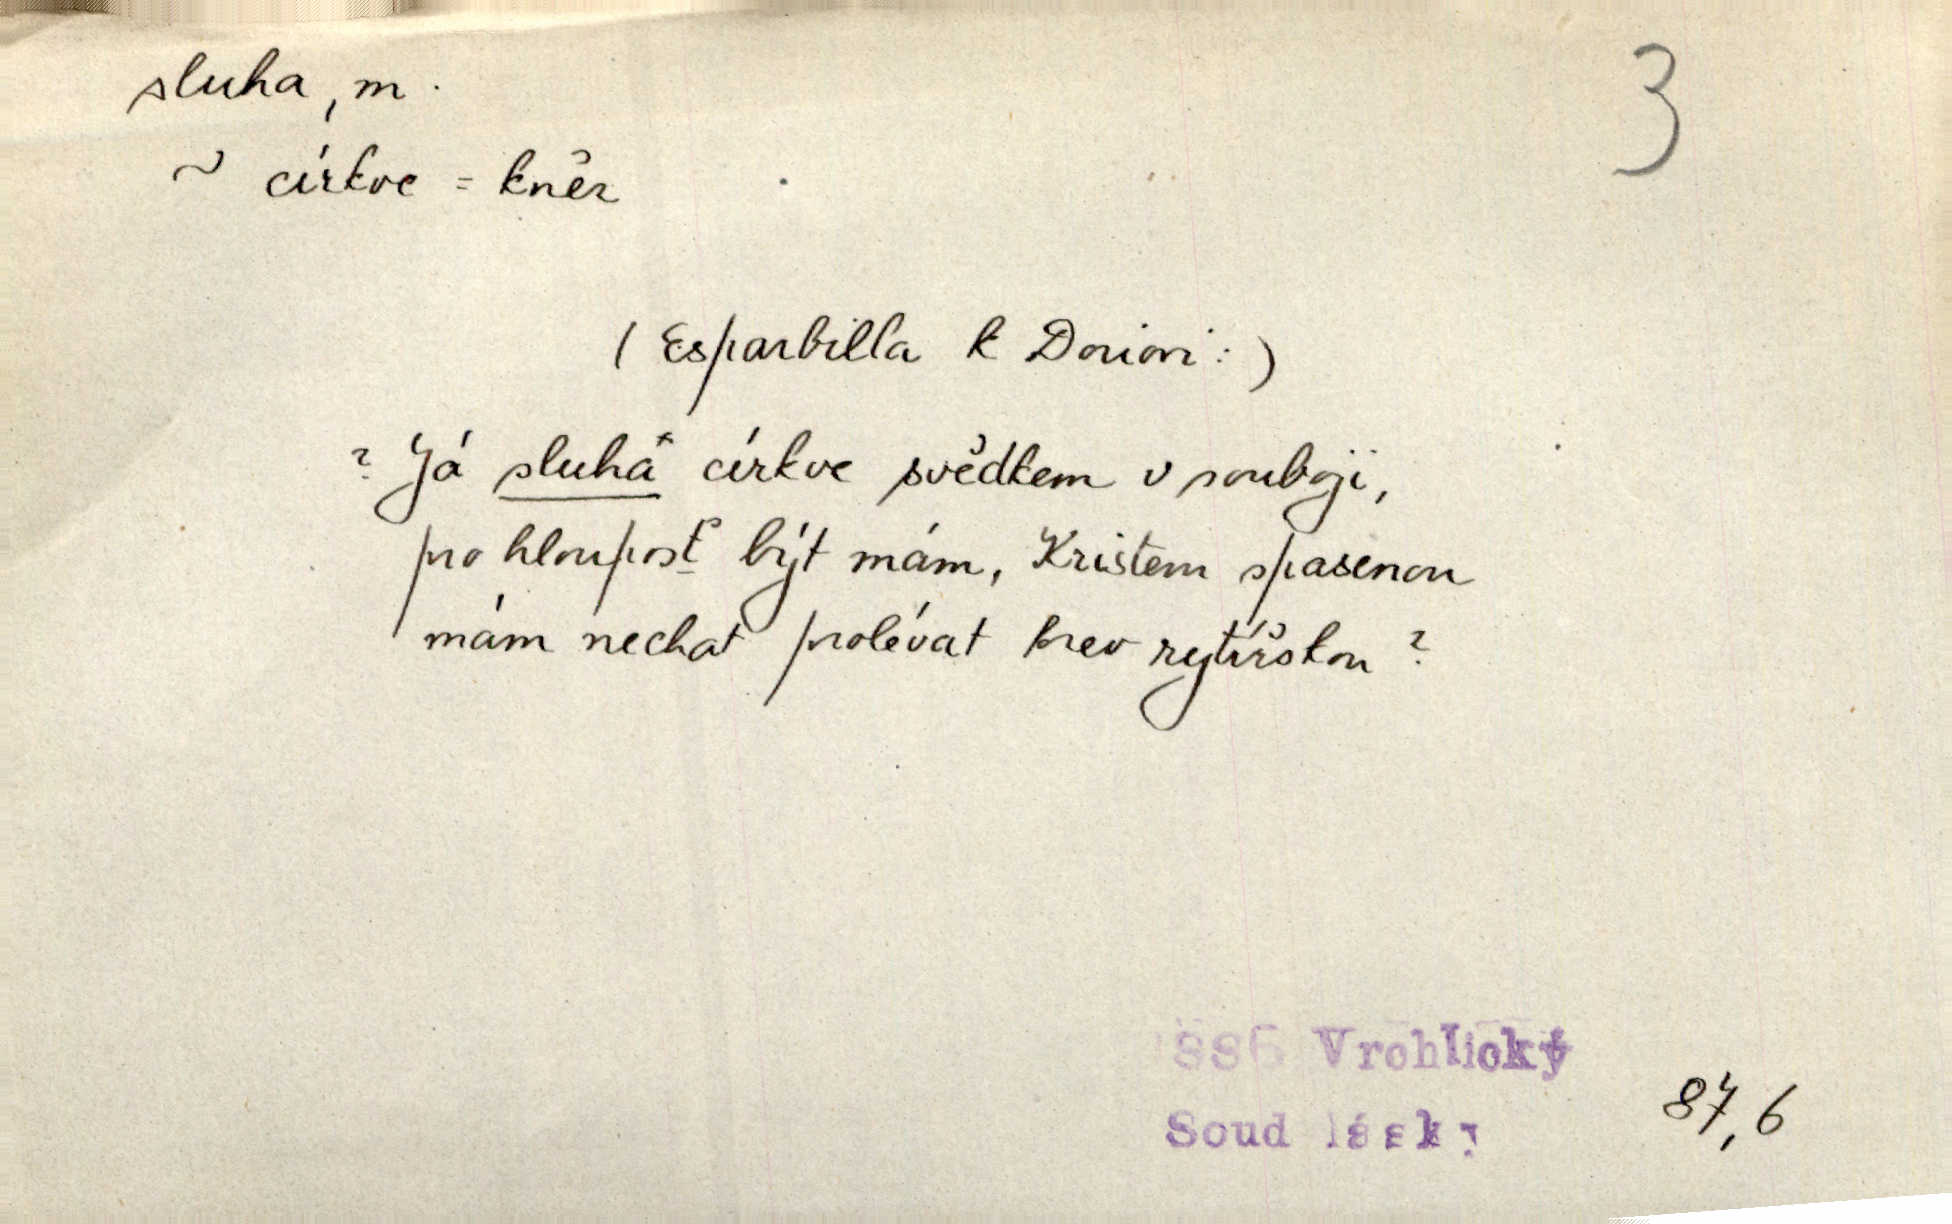 sluha, m.
3
~ církve = kněz
(Esparbilla k Dorioni:)
? Já sluhâ církve svědkem v souboji,
pro hloupost být mám, Kristem spasenou
mám nechat prolévat krev rytířskou?
886 Vrchlický
Soud lásky
87,6